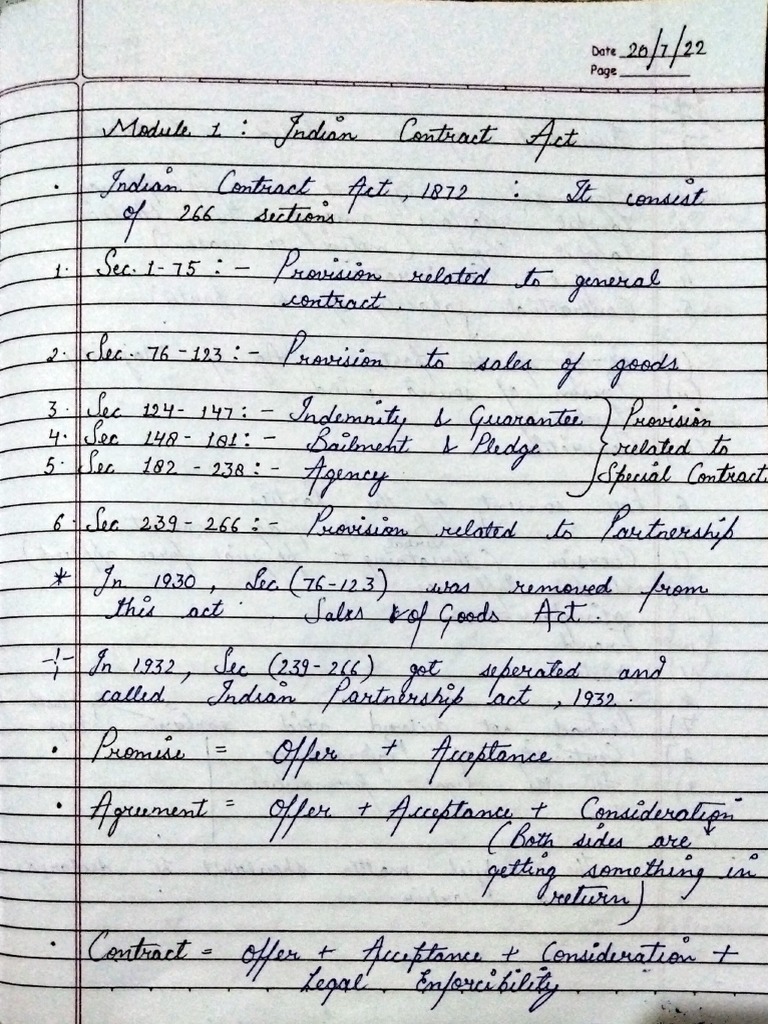 Date 20/7/22
Page
Module 1 : Indian Contract Act
• Indian Contract Act, 1872 : It consist
of 266 sections
1. Sec. 1-75 :- Provision related to general
contract.
2. Sec. 76-123 :- Provision to sales of goods
3. Sec 124-147 :- Indemnity & Guarantee } Provision
4. Sec 148-181 :- Bailment & Pledge } related to
5. Sec 182-238 :- Agency } Special Contract
6. Sec 239-266 :- Provision related to Partnership
* In 1930, Sec (76-123) was removed from
this act. Sales of Goods Act.
-¦- In 1932, Sec (239-266) got seperated and
called Indian Partnership act, 1932.
• Promise = Offer + Acceptance
• Agreement = Offer + Acceptance + Consideration
(Both sides are
getting something in
return)
• Contract = Offer + Acceptance + Consideration +
Legal Enforcibility